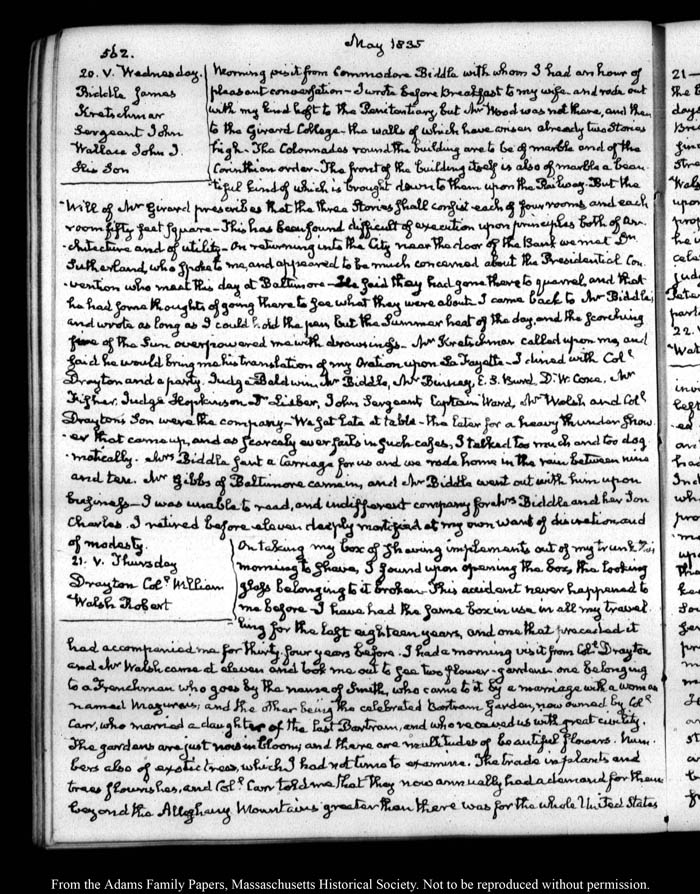 562.
May 1835
20. V. Wednesday.
Biddle James
Kretschmar
Sergeant John
Wallace John I.
His Son
Morning visit from Commodore Biddle with whom I had an hour of
pleasant conversation – I wrote before breakfast to my wife and rode out
with my kind host to the Penitentiary, but Mr Wood was not there, and then
to the Girard College – the walls of which have arisen already two Stories
high – The Colonnades round the building are to be of marble and of the
Corinthian order – The front of the building itself is also of marble a beau-
tiful kind of which is brought down to them upon the Railway – But the
Will of Mr Girard prescribes that the three Stories shall consist each of four rooms and each
room fifty feet square – This has been found difficult of execution upon principles both of ar-
chitecture and of utility – On returning into the City near the door of the Bank we met Dr
Sutherland, who spoke to me, and appeared to be much concerned about the Presidential Con-
vention who meet this day at Baltimore – He said they had gone there to quarrel, and that
he had some thoughts of going there to see what they were about – I came back to Mr Biddle's
and wrote as long as I could hold the pen but the Summer heat of the day, and the scorching
fire of the Sun overpowered me with drowsiness – Mr Kretschmar called upon me, and
said he would bring me his translation of my Oration upon La Fayette – I dined with Coll
Drayton and a party. Judge Baldwin, Mr Biddle, Mr Binney, E. S. Burd, D. W. Coxe, Mr
Fisher, Judge Hopkinson Dr Lieber, John Sergeant Captain Ward, Mr Walsh and Coll
Drayton's Son were the company – We sat late at table – the later for a heavy thunder show-
er that came up, and as scarcely ever fails in such cases, I talked too much and too dog-
matically. Mrs Biddle sent a Carriage for us and we rode home in the rain between nine
and ten. Mr Gibbs of Baltimore came in, and Mr Biddle went out with him upon
business – I was unable to read, and indifferent company for Mrs Biddle and her Son
Charles. I retired before eleven deeply mortified at my own want of discretion and
of modesty.
21. V. Thursday
Drayton Coll William
Walsh Robert
On taking my box of shaving implements out of my trunk this
morning to shave, I found upon opening the box, the looking
glass belonging to it broken – This accident never happened to
me before – I have had the same box in use in all my travel-
ling for the last eighteen years, and one that preceded it
had accompanied me for thirty-four years before. I had a morning visit from Coll Drayton
and Mr Walsh came at eleven and took me out to see two flower-gardens one belonging
to a Frenchman who goes by the name of Smith, who came to it by a marriage with a woman
named and the other being the celebrated Bartram Garden, now owned by Coll
Carr, who married a daughter of the last Bartram, and who received us with great civility.
The gardens are just now in bloom, and there are multitudes of beautiful flowers. Num-
bers also of exotic trees, which I had not time to examine. The trade in plants and
trees flourishes, and Coll Carr told me that they now annually had a demand for them
beyond the Alleghany Mountains greater than there was for the whole United States
From the Adams Family Papers, Massachusetts Historical Society. Not to be reproduced without permission.